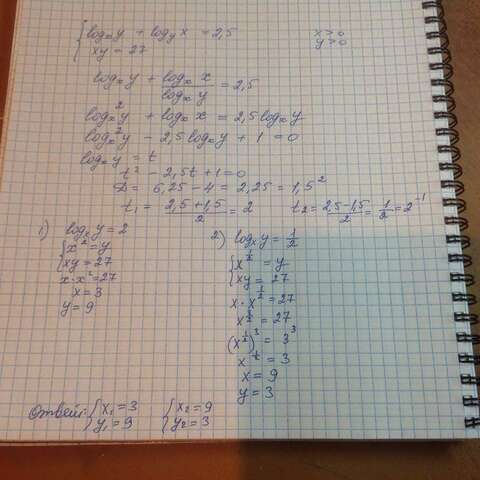 { logₓy + log_y x = 2,5    x>0
{ xy = 27    y>0
logₓy + logₓ x / logₓ y = 2,5
logₓ²y + logₓ x = 2,5 logₓ y
logₓ²y − 2,5 logₓ y + 1 = 0
logₓ y = t
t² − 2,5t + 1 = 0
D = 6,25 − 4 = 2,25 = 1,5²
t₁ = (2,5 + 1,5)/2 = 2    t₂ = (2,5 − 1,5)/2 = 1/2 = 2⁻¹
1) logₓ y = 2
{ x² = y
{ xy = 27
x · x² = 27
x = 3
y = 9
2) logₓ y = 1/2
{ x^(1/2) = y
{ xy = 27
x · x^(1/2) = 27
x^(3/2) = 27
(x^(1/2))³ = 3³
x^(1/2) = 3
x = 9
y = 3
Ответ: { x₁ = 3    { x₂ = 9
{ y₁ = 9    { y₂ = 3